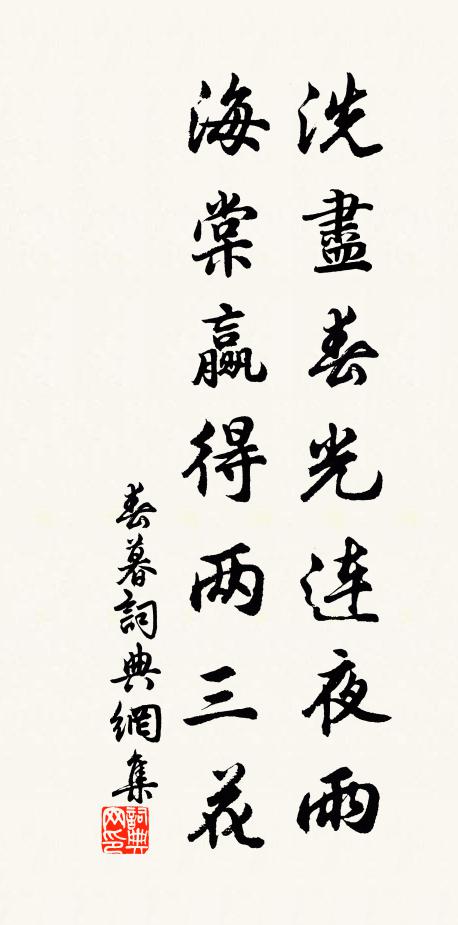 洗盡春光連夜雨
海棠贏得两三花
春暮詞典網集
詞典网印